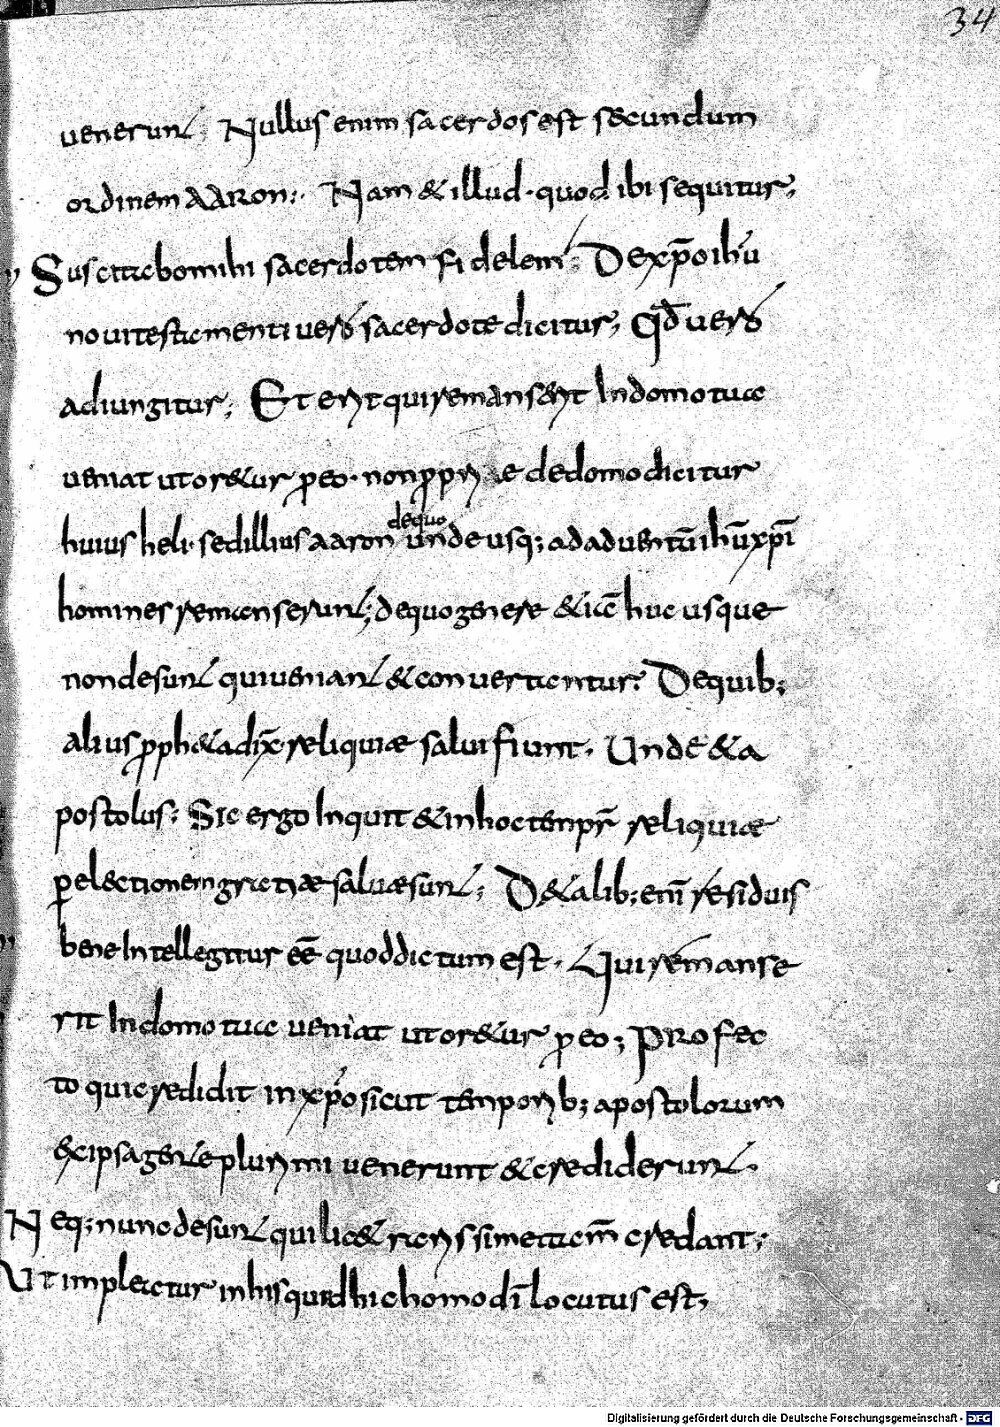 34
uenerunt; Nullus enim sacerdos est secundum
ordinem aaron; Nam & illud · quod ibi sequitur;
Suscitabo mihi sacerdotem fidelem; De xp̄o ihū
noui testamenti uero sacerdote dicitur; Qd̄ uero
adiungitur; Et erit qui remanserit In domo tua
ueniat ut or&ur p eo · non pprie de domo dicitur
huius heli · sed illius aaron unde usq; ad aduentū ihū xp̄i
dequo
homines remanserunt; de quo genere & iā huc usque
non desunt qui ueniant & conuertantur; De quib;
alius pph&a dix̄ reliquiæ saluæ fiunt. Unde & a
postolus; Sic ergo Inquit & in hoc tempr̄ reliquiæ
p el&ionem gratiæ saluæ sunt; De talib; em̄ residuis
bene Intellegitur eē quod dictum est. Qui remanse
rit In domo tua ueniat ut or&ur p eo; Profec
to qui credidit in xp̄o sicut temporib; apostolorum
& ipsa gente plurimi uenerunt & crediderunt.
Neq; nunc desunt qui lic& rarissime tam̄ credant;
Ut impleatur in his quod hic homo dī locutus est;
Digitalisierung gefördert durch die Deutsche Forschungsgemeinschaft - DFG